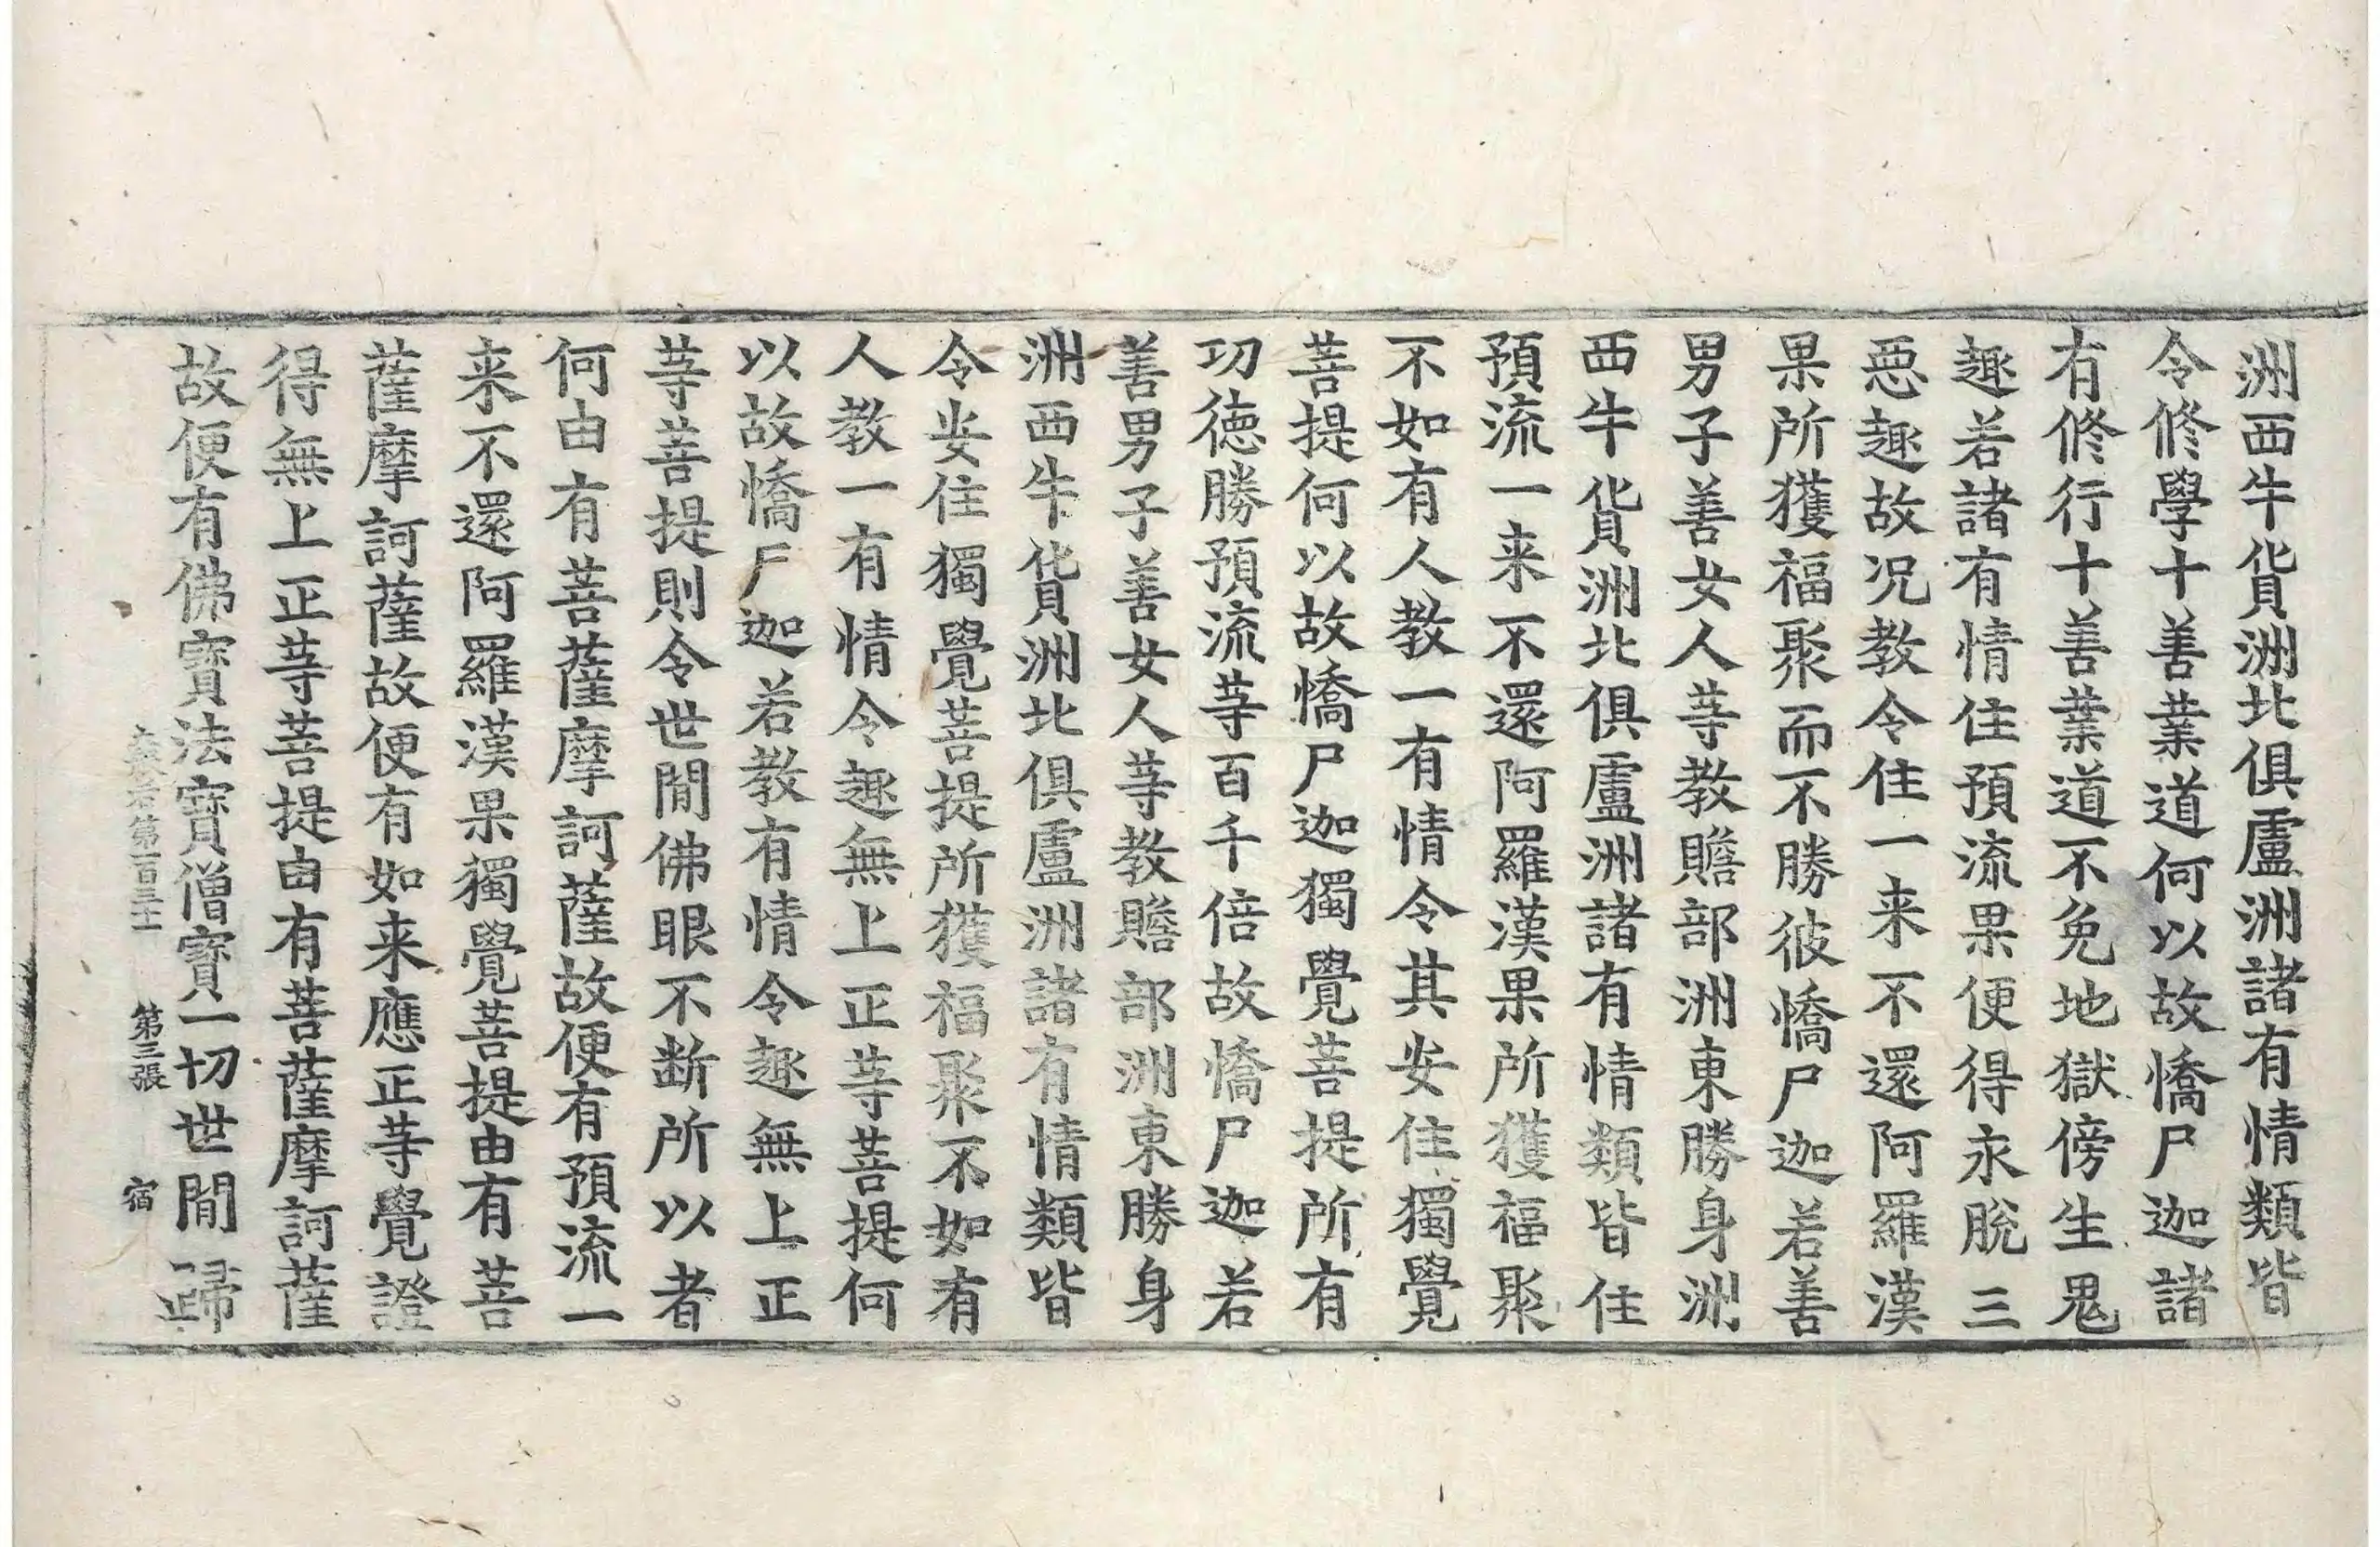 洲西牛貨洲北俱盧洲諸有情類皆
令修學十善業道何以故憍尸迦諸
有修行十善業道不免地獄傍生鬼
趣若諸有情住預流果便得永脫三
惡趣故况教令住一来不還阿羅漢
果所獲福聚而不勝彼憍尸迦若善
男子善女人等教贍部洲東勝身洲
西牛貨洲北俱盧洲諸有情類皆住
預流一来不還阿羅漢果所獲福聚
不如有人教一有情令其安住獨覺
菩提何以故憍尸迦獨覺菩提所有
功德勝預流等百千倍故憍尸迦若
善男子善女人等教贍部洲東勝身
洲西牛貨洲北俱盧洲諸有情類皆
令安住獨覺菩提所獲福聚不如有
人教一有情令趣無上正等菩提何
以故憍尸迦若教有情令趣無上正
等菩提則令世間佛眼不断所以者
何由有菩薩摩訶薩故便有預流一
来不還阿羅漢果獨覺菩提由有菩
薩摩訶薩故便有如来應正等覺證
得無上正等菩提由有菩薩摩訶薩
故便有佛寶法寶僧寶一切世間歸
第一百三十 第三張 宿